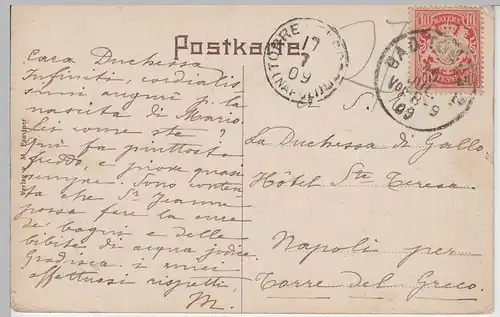 Postkarte
TORRE
17
7
09
BAYERN
10
10
BAD
Vor
8-9
09
Verlag v. M.
Cara Duchessa
Infiniti, cordialis
simi auguri p. la
nascita di Mario.
Lei come sta?
Qui fa piuttosto
freddo, e piove quasi
sempre. Sono conten-
ta che Sr Jeanne
possa fare la cura
dei bagni e delle
bibite di acqua jodica.
Gradisca i miei
affettuosi rispetti.
M.
A S. E.
La Duchessa di Gallo
Hôtel Sta Teresa
Napoli per
Torre del Greco.